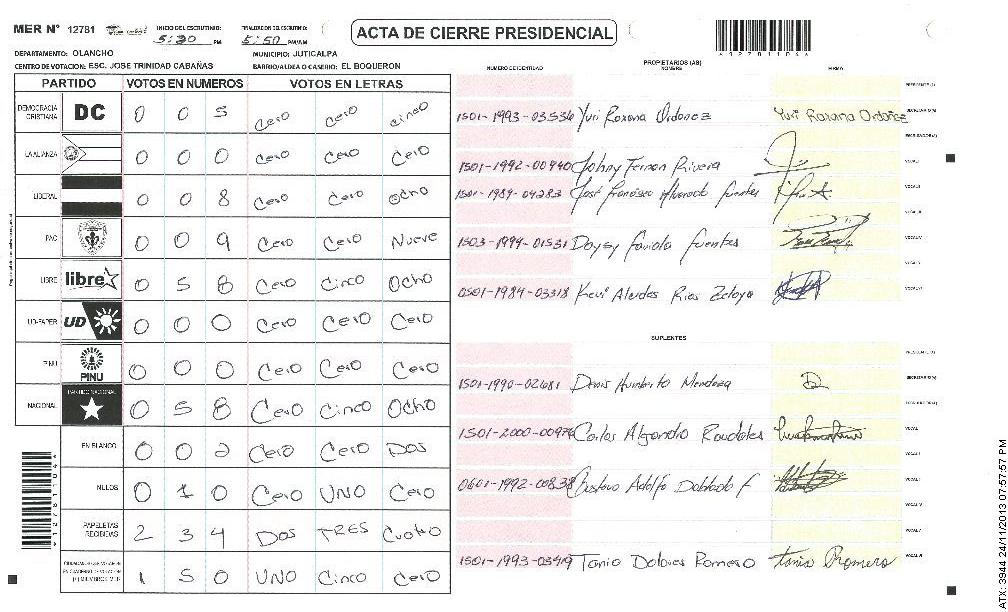 MER Nº 12781 INICIO DEL ESCRUTINIO: 5:30 PM FINALIZACION DEL ESCRUTINIO: 5:50 PM/AM
ACTA DE CIERRE PRESIDENCIAL
DEPARTAMENTO: OLANCHO MUNICIPIO: JUTICALPA
CENTRO DE VOTACION: ESC. JOSE TRINIDAD CABAÑAS BARRIO/ALDEA O CASERIO: EL BOQUERON
PARTIDO VOTOS EN NUMEROS VOTOS EN LETRAS
DEMOCRACIA CRISTIANA DC 0 0 5 Cero Cero cinco
LA ALIANZA 0 0 0 Cero Cero Cero
LIBERAL 0 0 8 Cero Cero Ocho
PAC 0 0 9 Cero Cero Nueve
LIBRE libre 0 5 8 Cero Cinco Ocho
UD-FAPER UD 0 0 0 Cero Cero Cero
PINU PINU 0 0 0 Cero Cero Cero
NACIONAL PARTIDO NACIONAL 0 5 8 Cero Cinco Ocho
EN BLANCO 0 0 2 Cero Cero Dos
NULOS 0 1 0 Cero UNO Cero
PAPELETAS RECIBIDAS 2 3 4 Dos TRES Cuatro
1 5 0 UNO Cinco Cero
NUMERO DE IDENTIDAD PROPIETARIOS (AS) NOMBRE FIRMA
PRESIDENTE(A)
1501-1993-03536 Yuri Roxana Ordonez Yuri Roxana Ordoñez SECRETARIO(A)
ESCRUTADOR(A)
1501-1992-00940 Johny Fernan Rivera VOCAL I
1501-1989-04283 José Francisco Alvarado fuentes VOCAL II
VOCAL III
1503-1994-01531 Daysy fuentes VOCAL IV
VOCAL V
0501-1984-03318 Rios Zelaya VOCAL VI
SUPLENTES
PRESIDENTE(A)
1501-1990-02681 Denis Humberto Mendoza SECRETARIO(A)
ESCRUTADOR(A)
1501-2000-00976 Carlos Alejandro VOCAL I
0601-1992-00838 Gustavo Adolfo Doblado f
1501-1993-03419 Tania Dolores Romero Tania Romero VOCAL VI
ATX: 3944 24/11/2013 07:57:57 PM